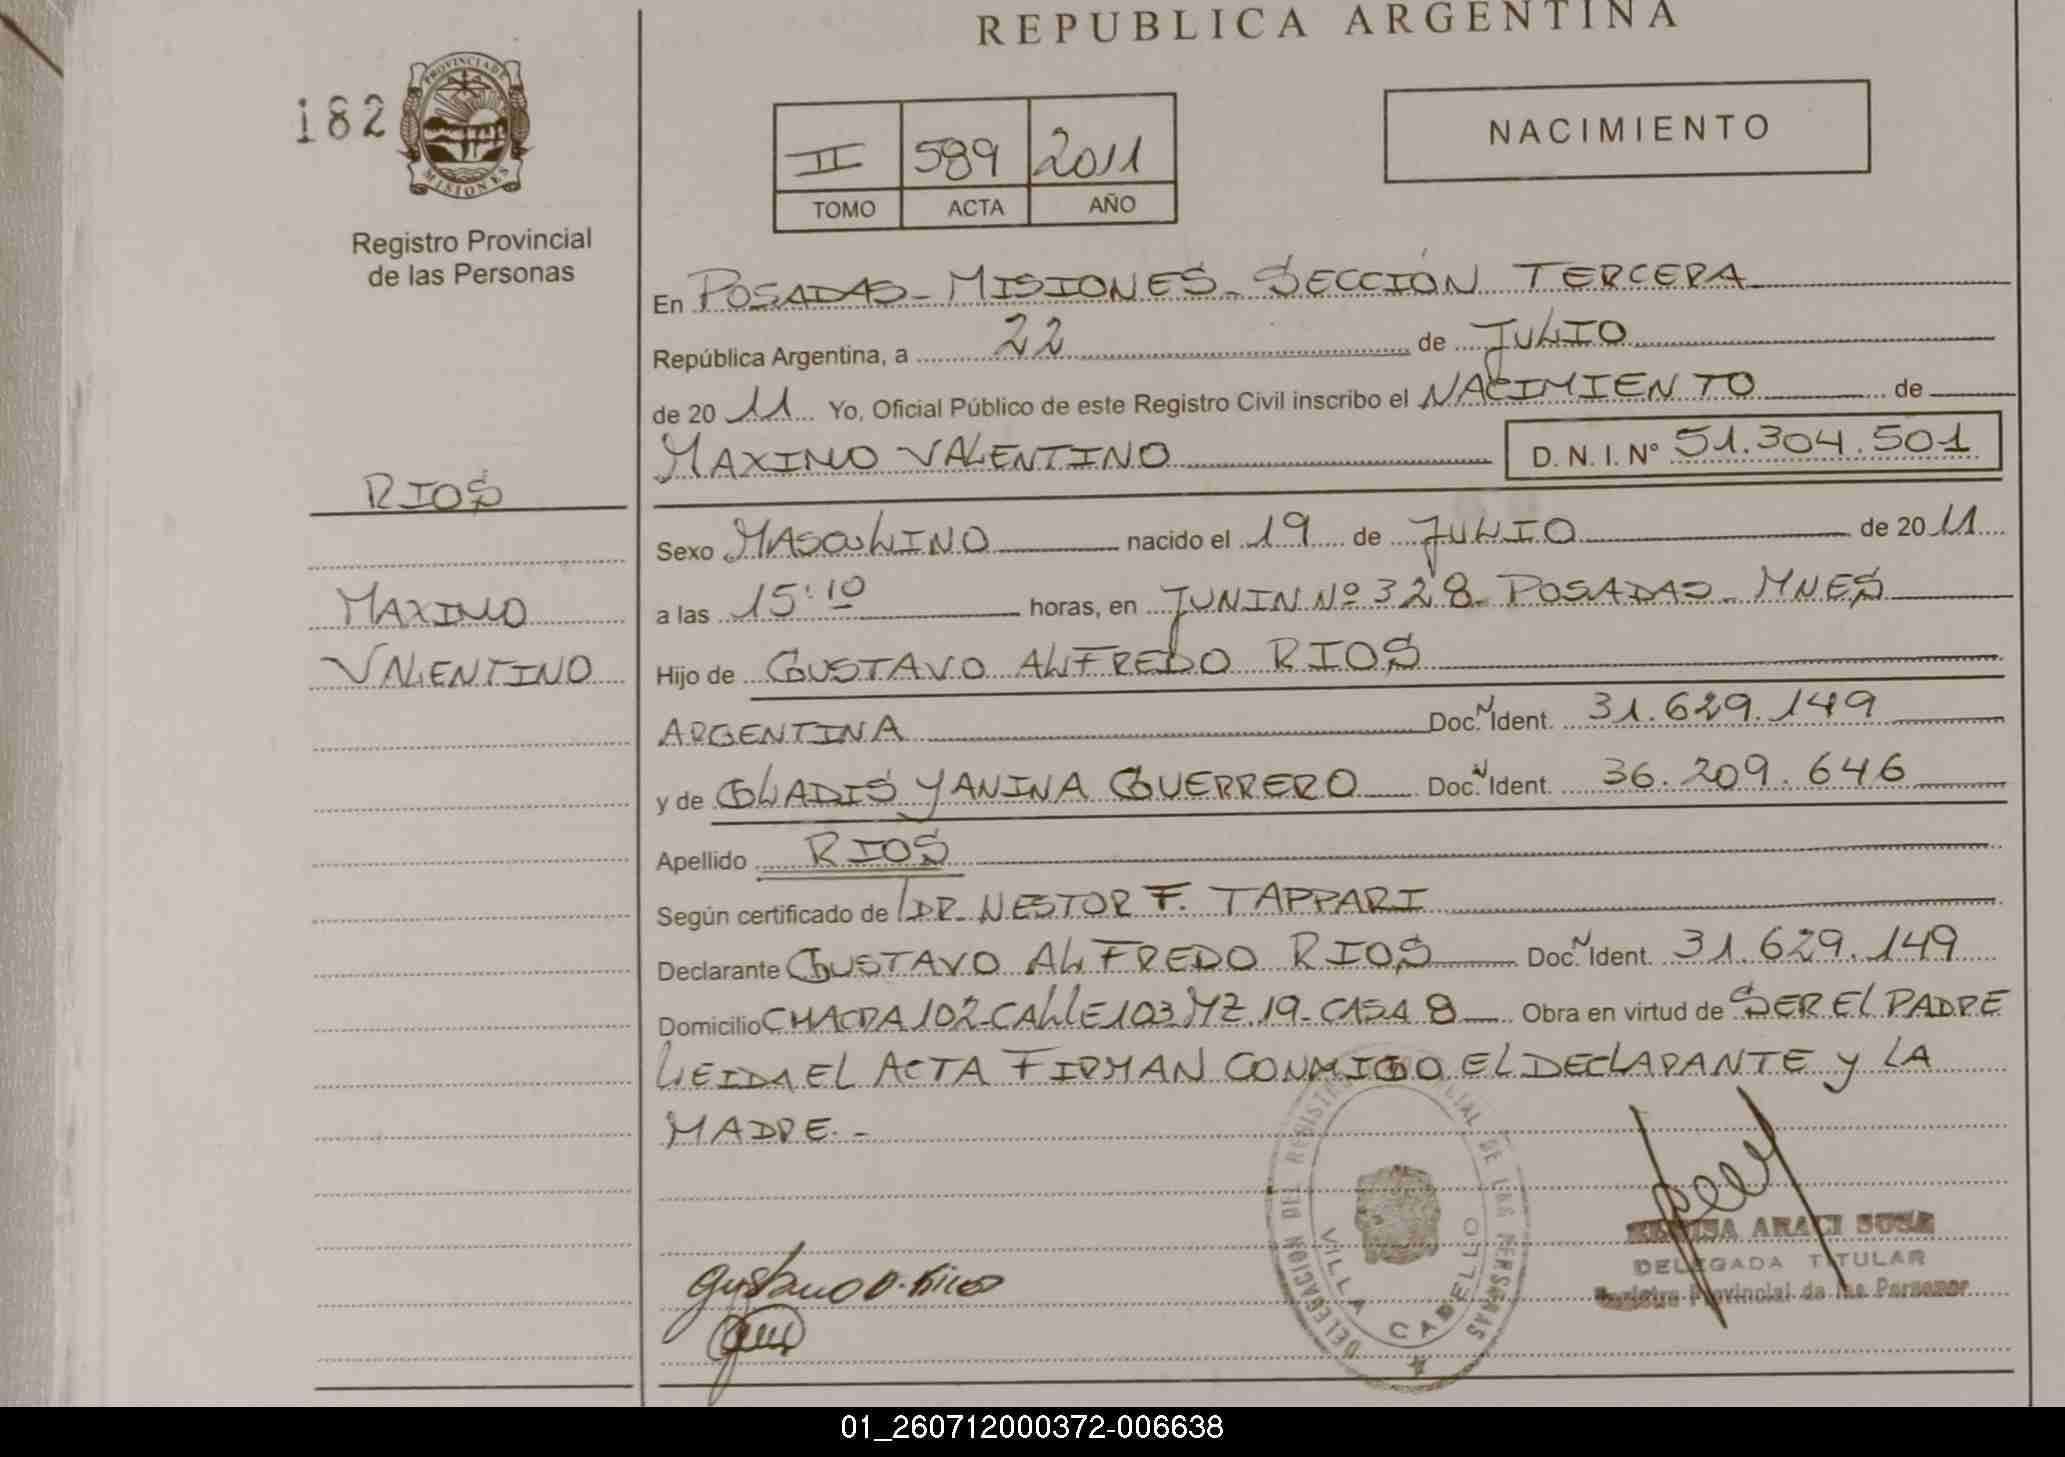 REPUBLICA ARGENTINA
182
PROVINCIA DE MISIONES
Registro Provincial
de las Personas
II 589 2011
TOMO ACTA AÑO
NACIMIENTO
En POSADAS - MISIONES - SECCIÓN TERCERA
República Argentina, a 22 de JULIO
de 20 11 Yo, Oficial Público de este Registro Civil inscribo el NACIMIENTO de
MAXIMO VALENTINO D. N. I. Nº 51.304.501
RIOS
Sexo MASCULINO nacido el 19 de JULIO de 2011
MAXIMO
a las 15:10 horas, en JUNIN Nº 328 - POSADAS - MNES
VALENTINO
Hijo de GUSTAVO ALFREDO RIOS
ARGENTINA Doc. N Ident. 31.629.149
y de GLADIS YANINA GUERRERO Doc. N Ident. 36.209.646
Apellido RIOS
Según certificado de DR. NESTOR F. TAPPARI
Declarante GUSTAVO ALFREDO RIOS Doc. N Ident. 31.629.149
Domicilio CHACRA 102 - CALLE 103 MZ. 19 - CASA 8 Obra en virtud de SER EL PADRE
LEIDA EL ACTA FIRMAN CONMIGO EL DECLARANTE y LA
MADRE. -
DELEGACION DEL REGISTRO PROVINCIAL DE LAS PERSONAS
VILLA CABELLO
ARACI
DELEGADA TITULAR
Registro Provincial de las Personas
Gustavo A. Rios
01_260712000372-006638